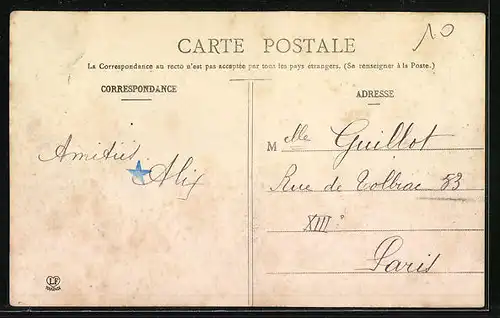 10
CARTE POSTALE
La Correspondance au recto n'est pas acceptée par tous les pays étrangers. (Se renseigner à la Poste.)
CORRESPONDANCE
ADRESSE
Mlle Guillot
Amitiés
Alix
Rue de Tolbiac 83
XIIIe
Paris
LF